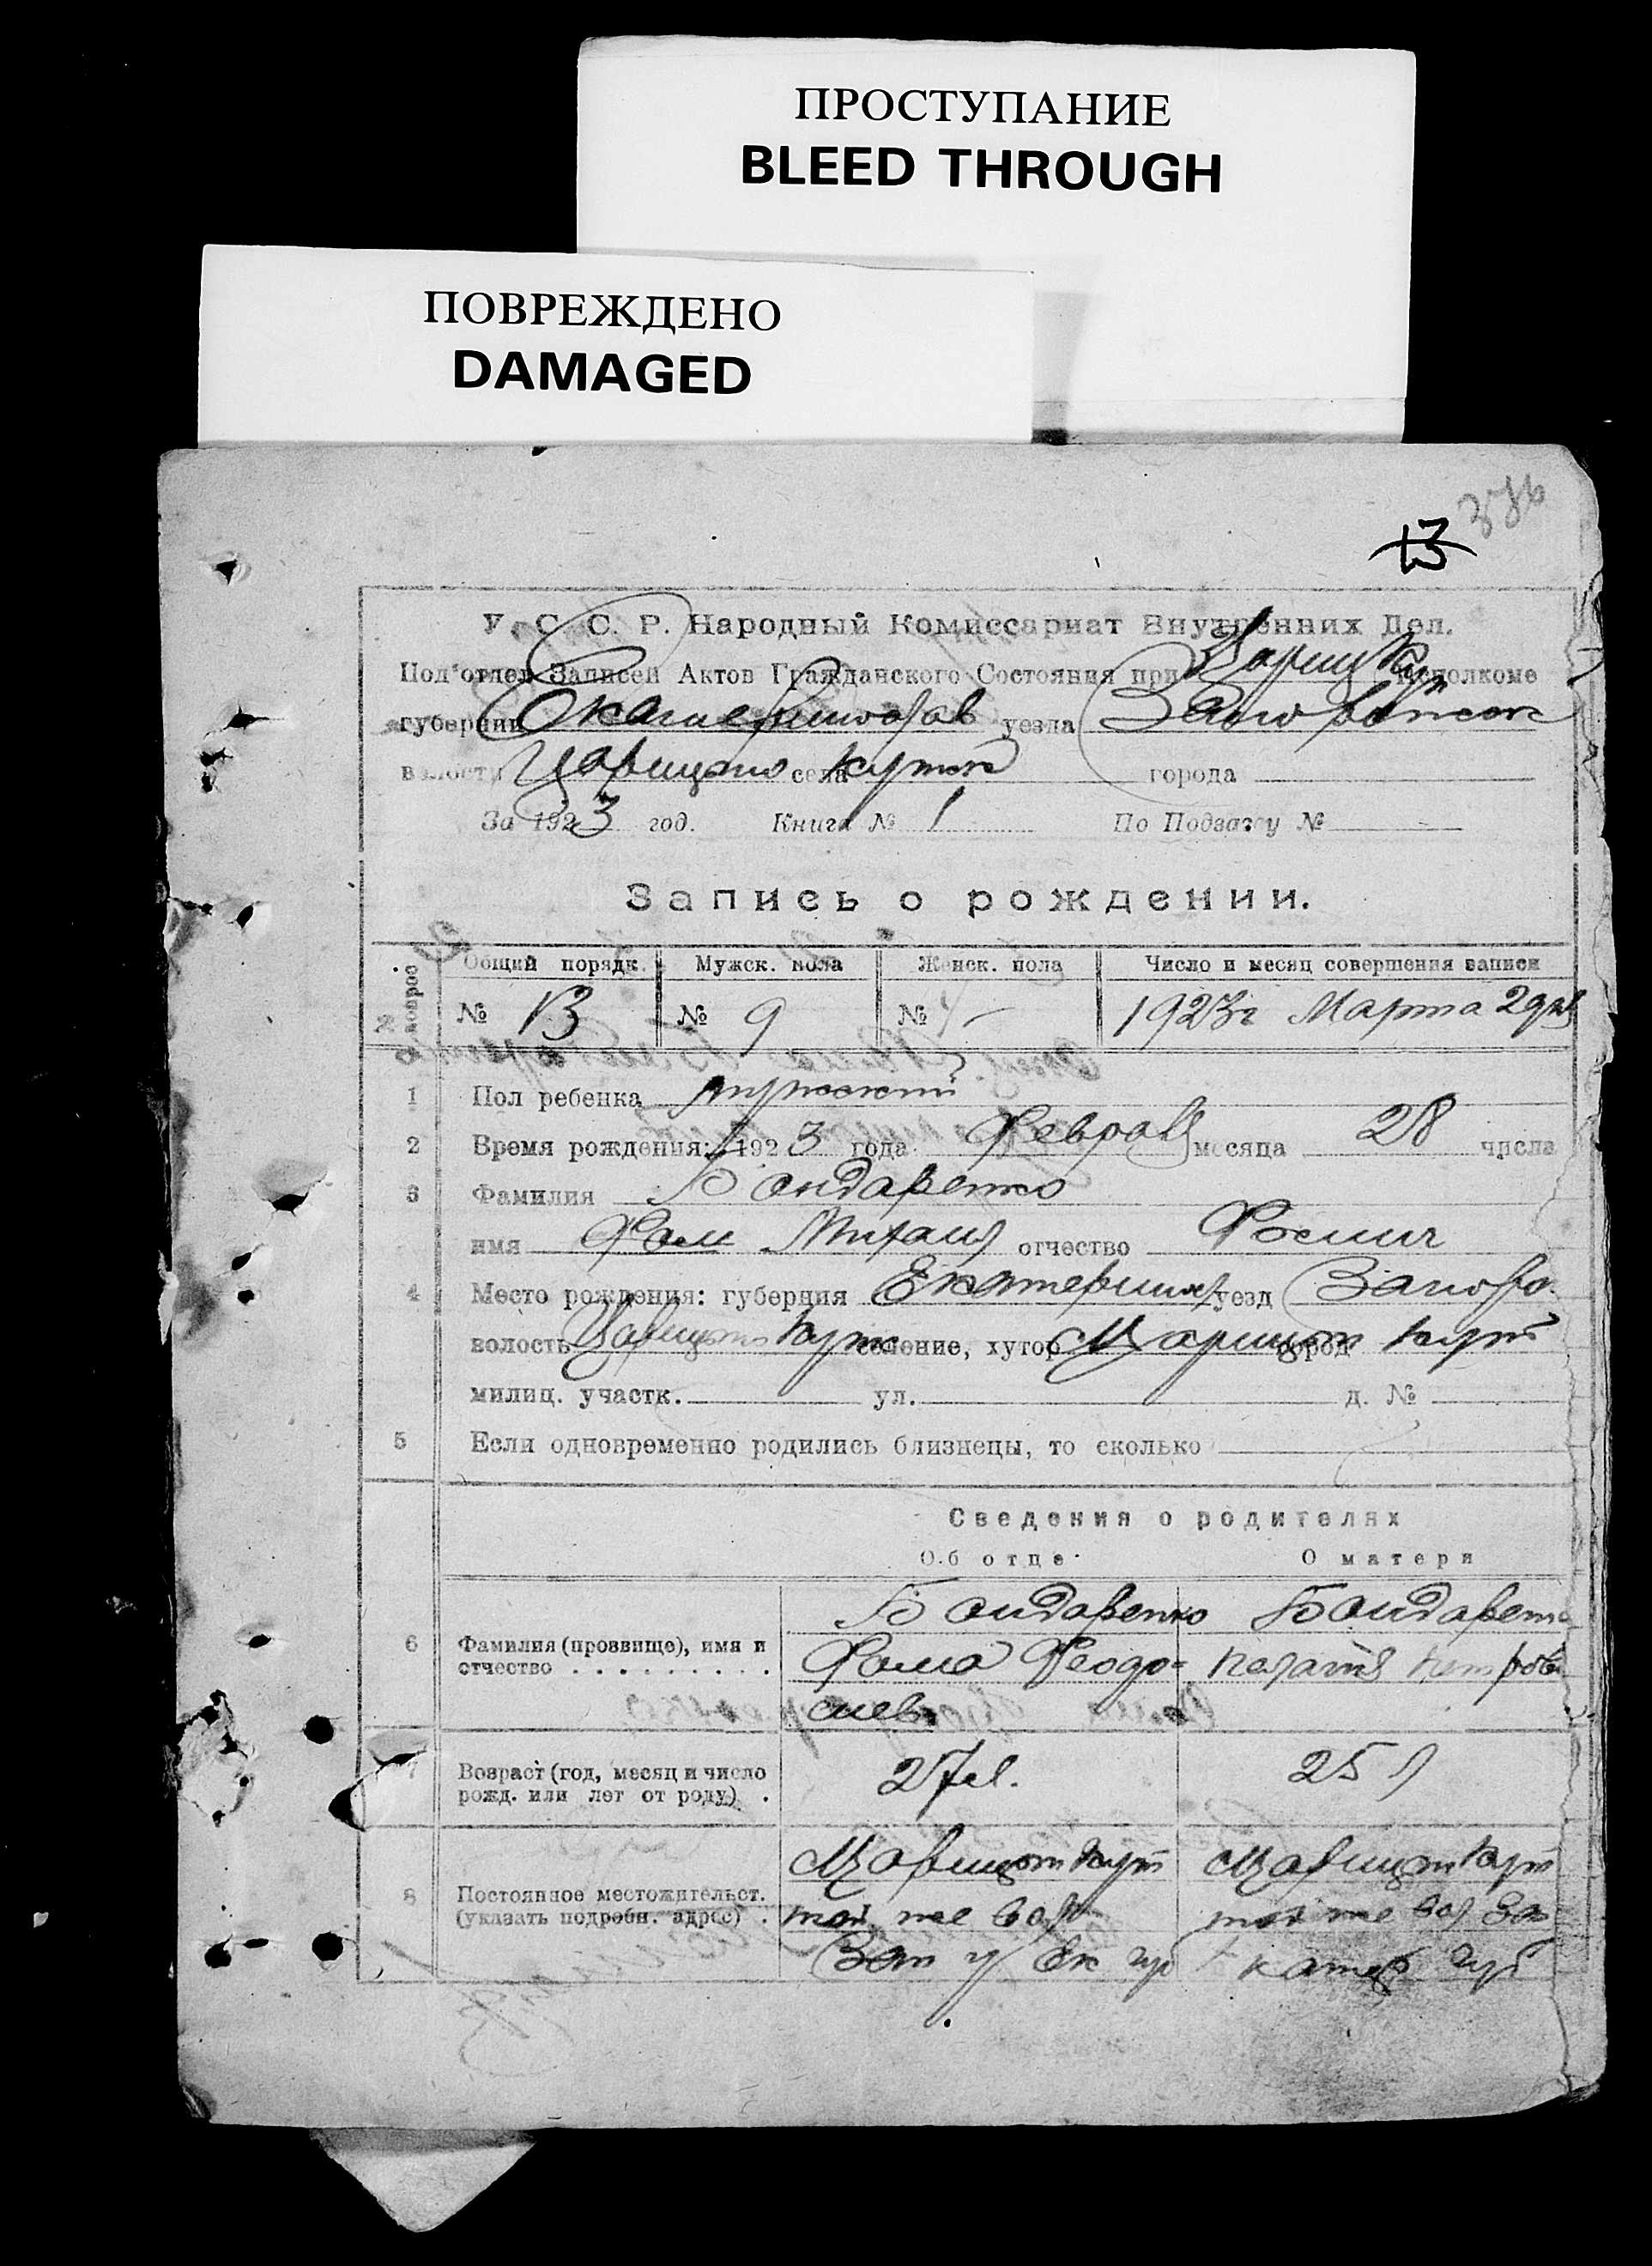 ПРОСТУПАНИЕ
BLEED THROUGH
ПОВРЕЖДЕНО
DAMAGED
13
У. С. С. Р. Народный Комиссариат Внутренних Дел.
Под'отдел Записей Актов Гражданского Состояния при Цариц Кут исполкоме
губернии Екатеринослав уезда Запорожск
волости Царицыно села Кутск города
За 1923 год. Книга № 1 По Подзагсу №
Запись о рождении.
№ вопрос Общий порядк. Мужск. пола Женск. пола Число и месяц совершения записи
№ 13 № 9 № – 1923г Марта 2 дня
1 Пол ребенка мужской
2 Время рождения: 1923 года Февраля месяца 28 числа
3 Фамилия Бондаренко
имя Фом Михаил отчество Фомич
4 Место рождения: губерния Екатеринос уезд Запоро.
волость Царицын Кут селение, хутор Царицын Кут город
милиц. участк. ул. д. №
5 Если одновременно родились близнецы, то сколько
Сведения о родителях
Об отце О матери
Бондаренко Бондаренко
6 Фамилия (прозвище), имя и отчество . . . . . . . . . Фома Феодо- Пелагия Петровн
сиев
7 Возраст (год, месяц и число рожд. или лет от роду) . 27 л. 25 л
Царицын Кут Царицын Кут
8 Постоянное местожительст. (указать подробн. адрес) . той же вол той же вол Зап
Зап у Ек губ Екатер губ